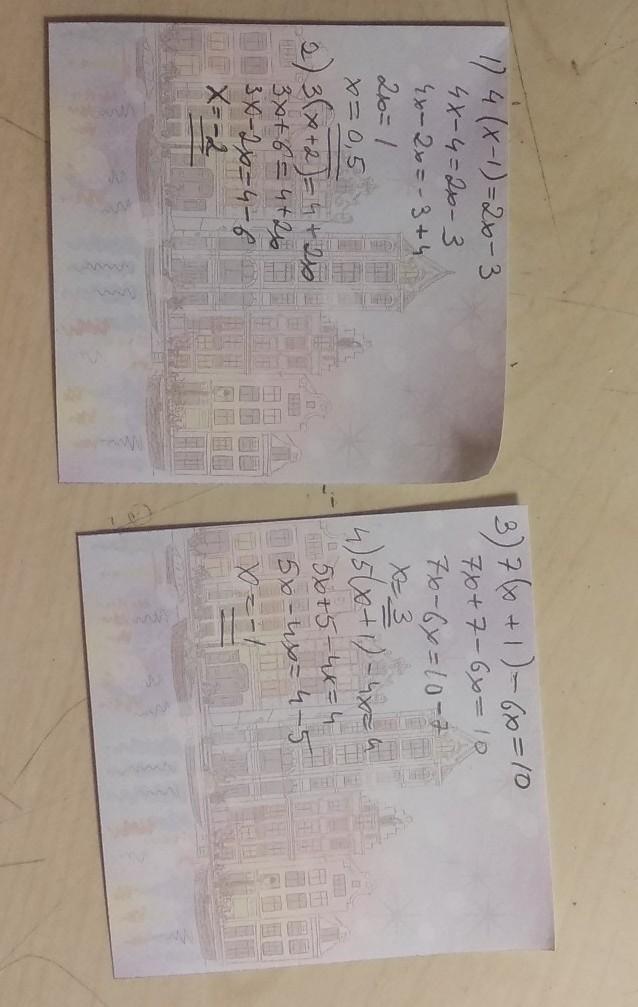 1) 4(x-1)=2x-3
4x-4=2x-3
4x-2x=-3+4
2x=1
x=0,5
2) 3(x+2)=4+2x
3x+6=4+2x
3x-2x=4-6
x=-2
3) 7(x+1)-6x=10
7x+7-6x=10
7x-6x=10-7
x=3
4) 5(x+1)-4x=4
5x+5-4x=4
5x-4x=4-5
x=-1